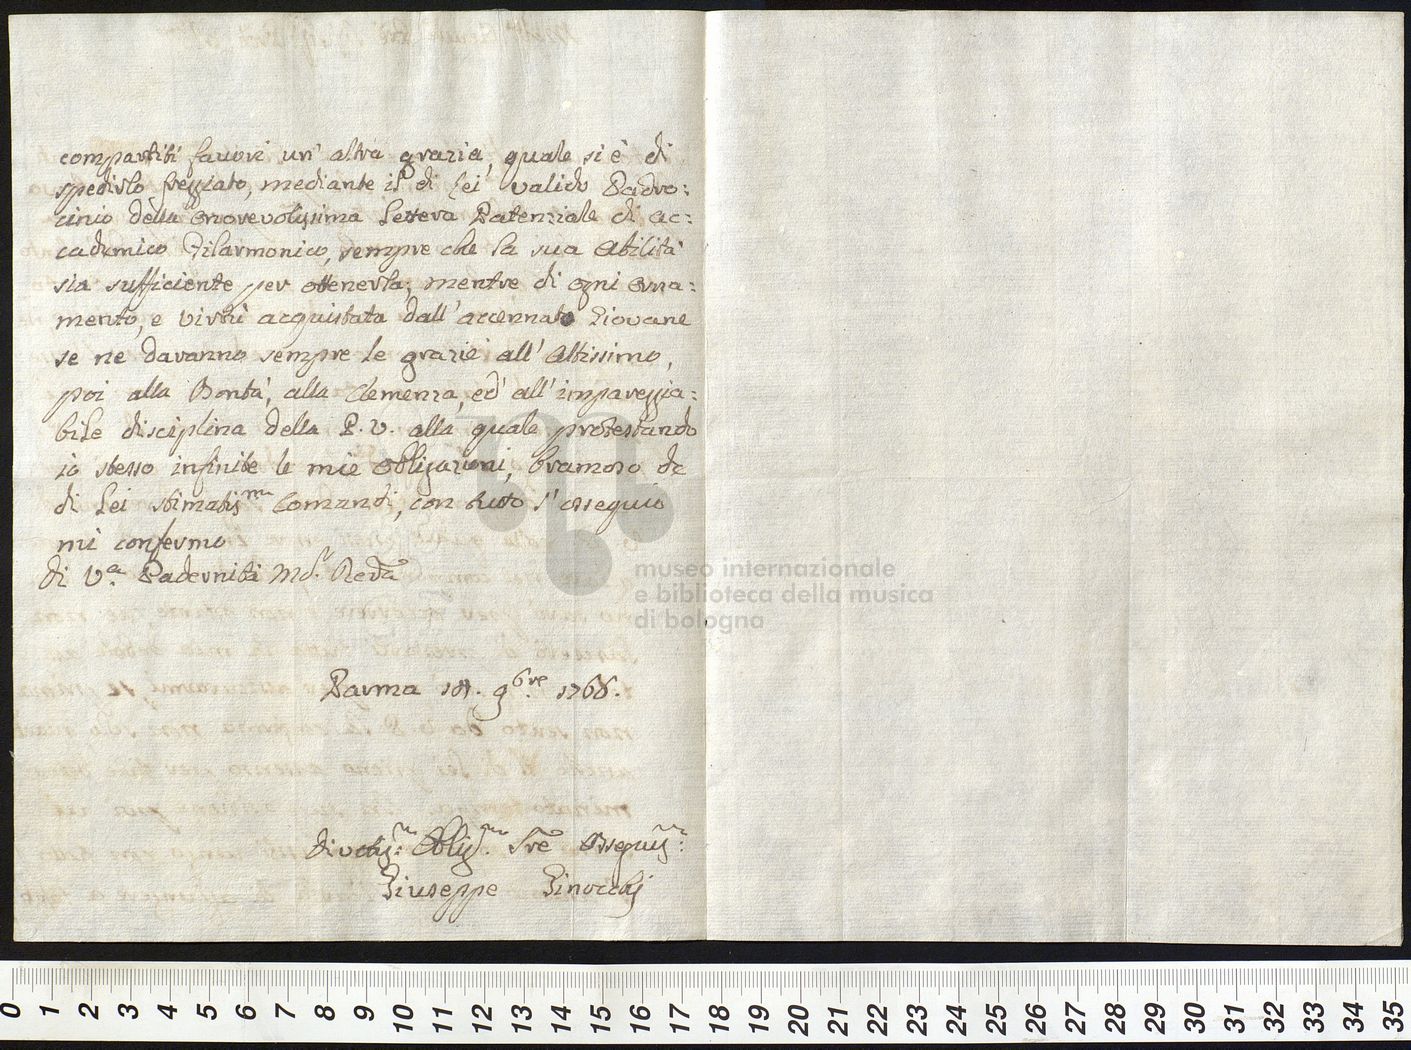 compartiti favori un' altra grazia, quale si è di
spedirlo freggiato, mediante il di Lei valido Padro:
cinio della onorevolissima Lettera Patenziale di ac:
cademico Filarmonico, sempre che la sua Abilità
sia sufficiente per ottenerla; mentre di ogni orna:
mento, e virtù acquistata dall' accennato Giovane
se ne daranno sempre le grazie all' Altissimo,
poi alla Bontà, alla Clemenza, ed all' impareggia:
bile disciplina della P. V. alla quale protestando
io stesso infinite le mie obbligazioni, bramoso de
di Lei stimatis.mi Comandi, con tutto l' ossequio
mi confermo
di V.a Paternità Md. Revda
Parma 9bre 1768.
Divotis. Oblig. Sre Ossequis.
Giuseppe Ginocchi
museo internazionale
e biblioteca della musica
di bologna
0 1 2 3 4 5 6 7 8 9 10 11 12 13 14 15 16 17 18 19 20 21 22 23 24 25 26 27 28 29 30 31 32 33 34 35